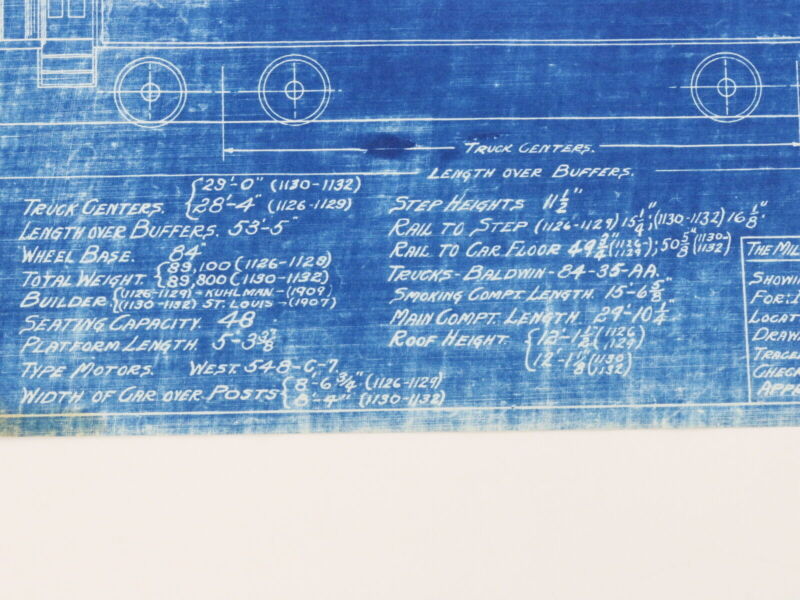 TRUCK CENTERS.
LENGTH OVER BUFFERS.
TRUCK CENTERS. {29'-0" (1130-1132)
28'-4" (1126-1129)
LENGTH OVER BUFFERS. 53'-5"
WHEEL BASE. 84"
TOTAL WEIGHT. {89,100 (1126-1129)
89,800 (1130-1132)
BUILDER. {(1126-1129) - KUHLMAN - (1909)
(1130-1132) ST. LOUIS - (1907)
SEATING CAPACITY. 48
PLATFORM LENGTH. 5'-3 7/8"
TYPE MOTORS. WEST. 548-C-7.
WIDTH OF CAR OVER POSTS {8'-6 3/4" (1126-1129)
8'-4" (1130-1132)
STEP HEIGHTS 11 1/2"
RAIL TO STEP (1126-1129) 15 1/4"; (1130-1132) 16 1/8"
RAIL TO CAR FLOOR 49 3/4" (1126-1129); 50 5/8" (1130-1132)
TRUCKS - BALDWIN - 84-35-AA.
SMOKING COMPT. LENGTH. 15'-6 5/8"
MAIN COMPT. LENGTH. 29'-10 1/4"
ROOF HEIGHT. {12'-1 1/2" (1126-1129)
12'-1 1/8" (1130-1132)
THE MIL
SHOWI
FOR:
LOCAT
DRAW
TRACE
CHECK
APP